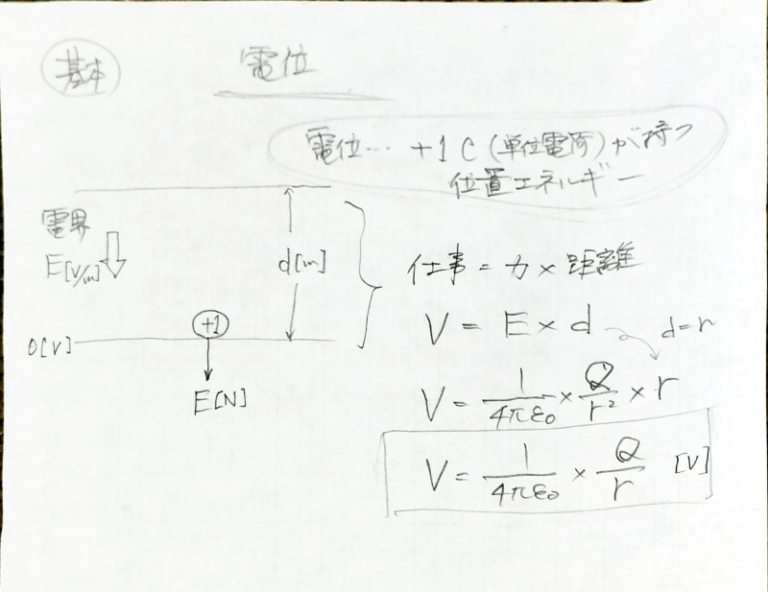 基本
電位
電位… +1C (単位電荷)が持つ
位置エネルギー
電界
E[V/m]
d[m]
0[V]
+1
E[N]
仕事 = 力 × 距離
V = E × d
d=r
V = 1/4πε₀ × Q/r² × r
V = 1/4πε₀ × Q/r [V]